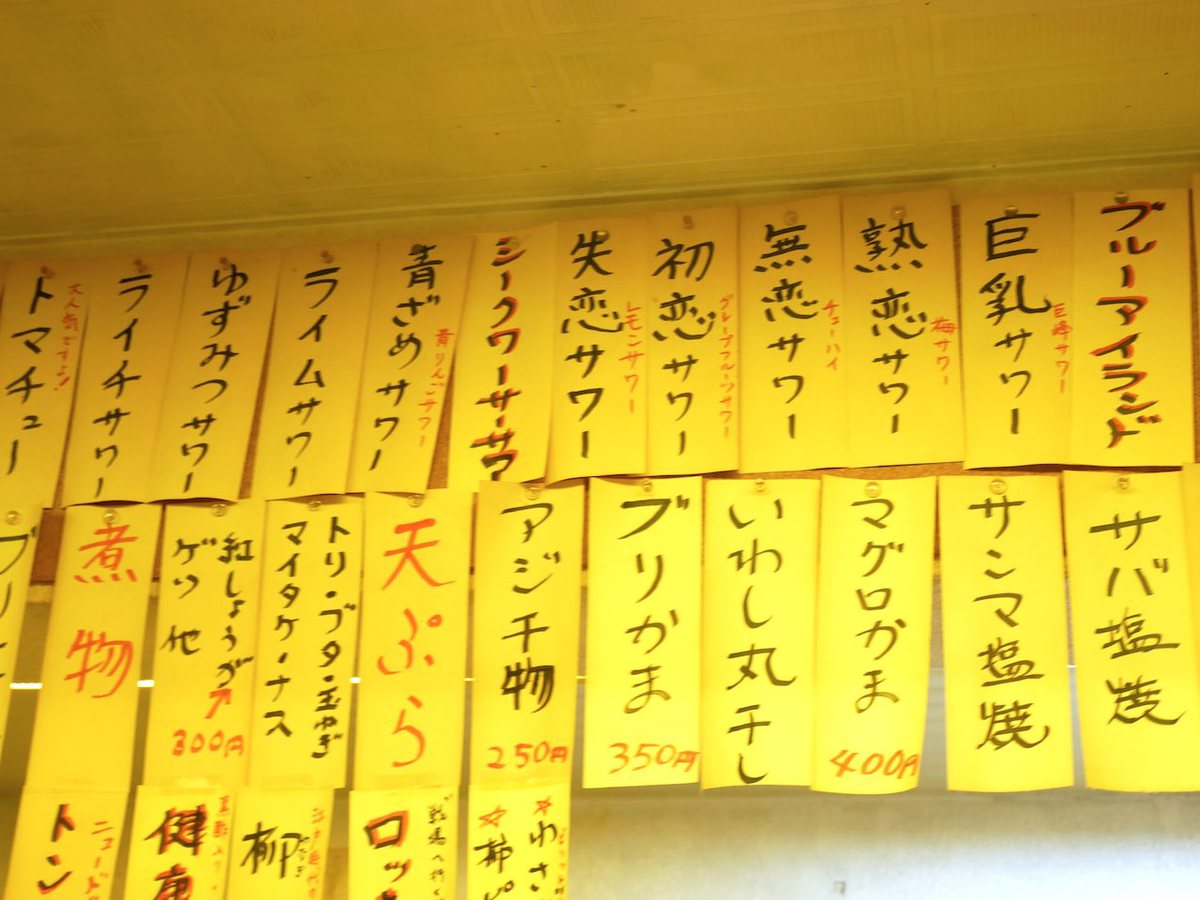 ブルーアイランド
巨乳サワー
巨峰サワー
熟恋サワー
梅サワー
無恋サワー
チューハイ
初恋サワー
グレープフルーツサワー
失恋サワー
レモンサワー
シークワーサーサワー
青ざめサワー
青りんごサワー
ライムサワー
ゆずみつサワー
ライチサワー
大人気ですよ!
トマチュー
サバ塩焼
サンマ塩焼
マグロかま
400円
いわし丸干し
ブリかま
350円
アジ干物
250円
天ぷら
トリ・ブタ・玉ねぎ
マイタケ・ナス
紅しょうが
ゲソ他
300円
煮物
ブリ
☆わさ
☆柿ピ
ロッ
柳
健康
ニュード
トン